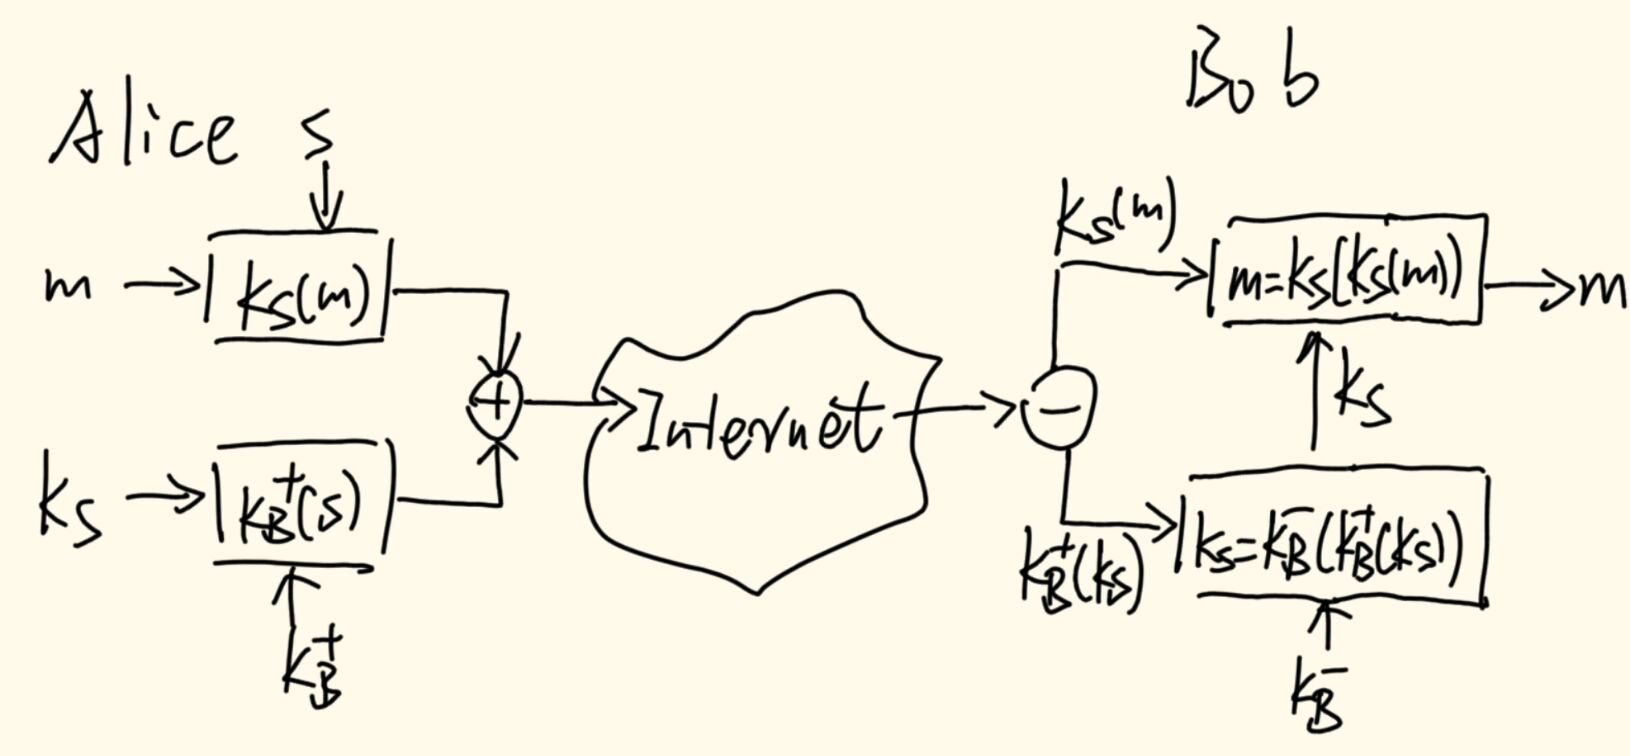 Bob
Alice s
m
Ks(m)
Ks
KB+(s)
KB+
+
Internet
−
Ks(m)
m=Ks(Ks(m))
m
Ks
KB+(Ks)
Ks=KB−(KB+(Ks))
KB−